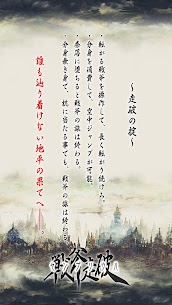 ～走破の掟～
・転がる戦斧を操作して、長く走れ、転がり続けろ。
・分身を消費して、空中ジャンプが可能。
・奈落に堕ちると戦斧の旅は終わる。
・分身無き身で、杭に当たる事でも、戦斧の旅は終わる。
誰も辿り着けない地平の果てへ――。
戦斧走破